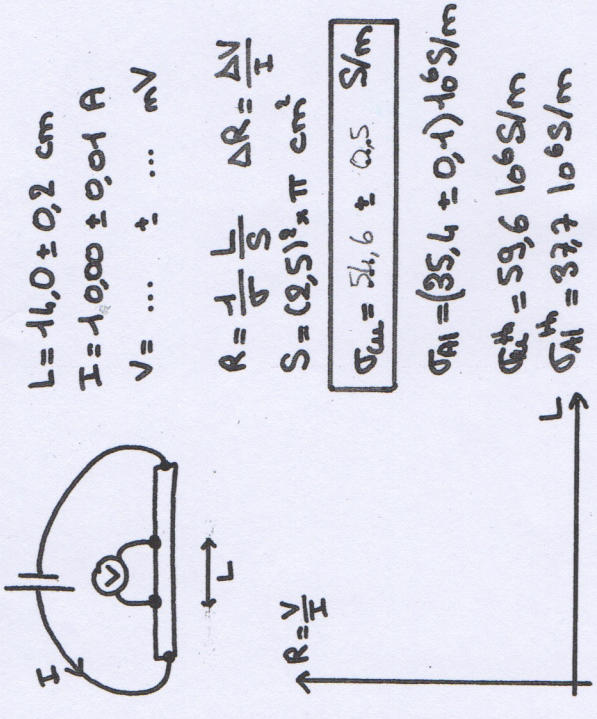 I
V
L
R = V/I
L
L = 14,0 ± 0,2 cm
I = 10,00 ± 0,01 A
V = ... ± ... mV
R = 1/σ L/S ΔR = ΔV/I
S = (2,5)² × π cm²
σCu = 54,6 ± 0,5 S/m
σAl = (35,4 ± 0,1) 10⁶ S/m
σCuᵗʰ = 59,6 10⁶ S/m
σAlᵗʰ = 37,7 10⁶ S/m